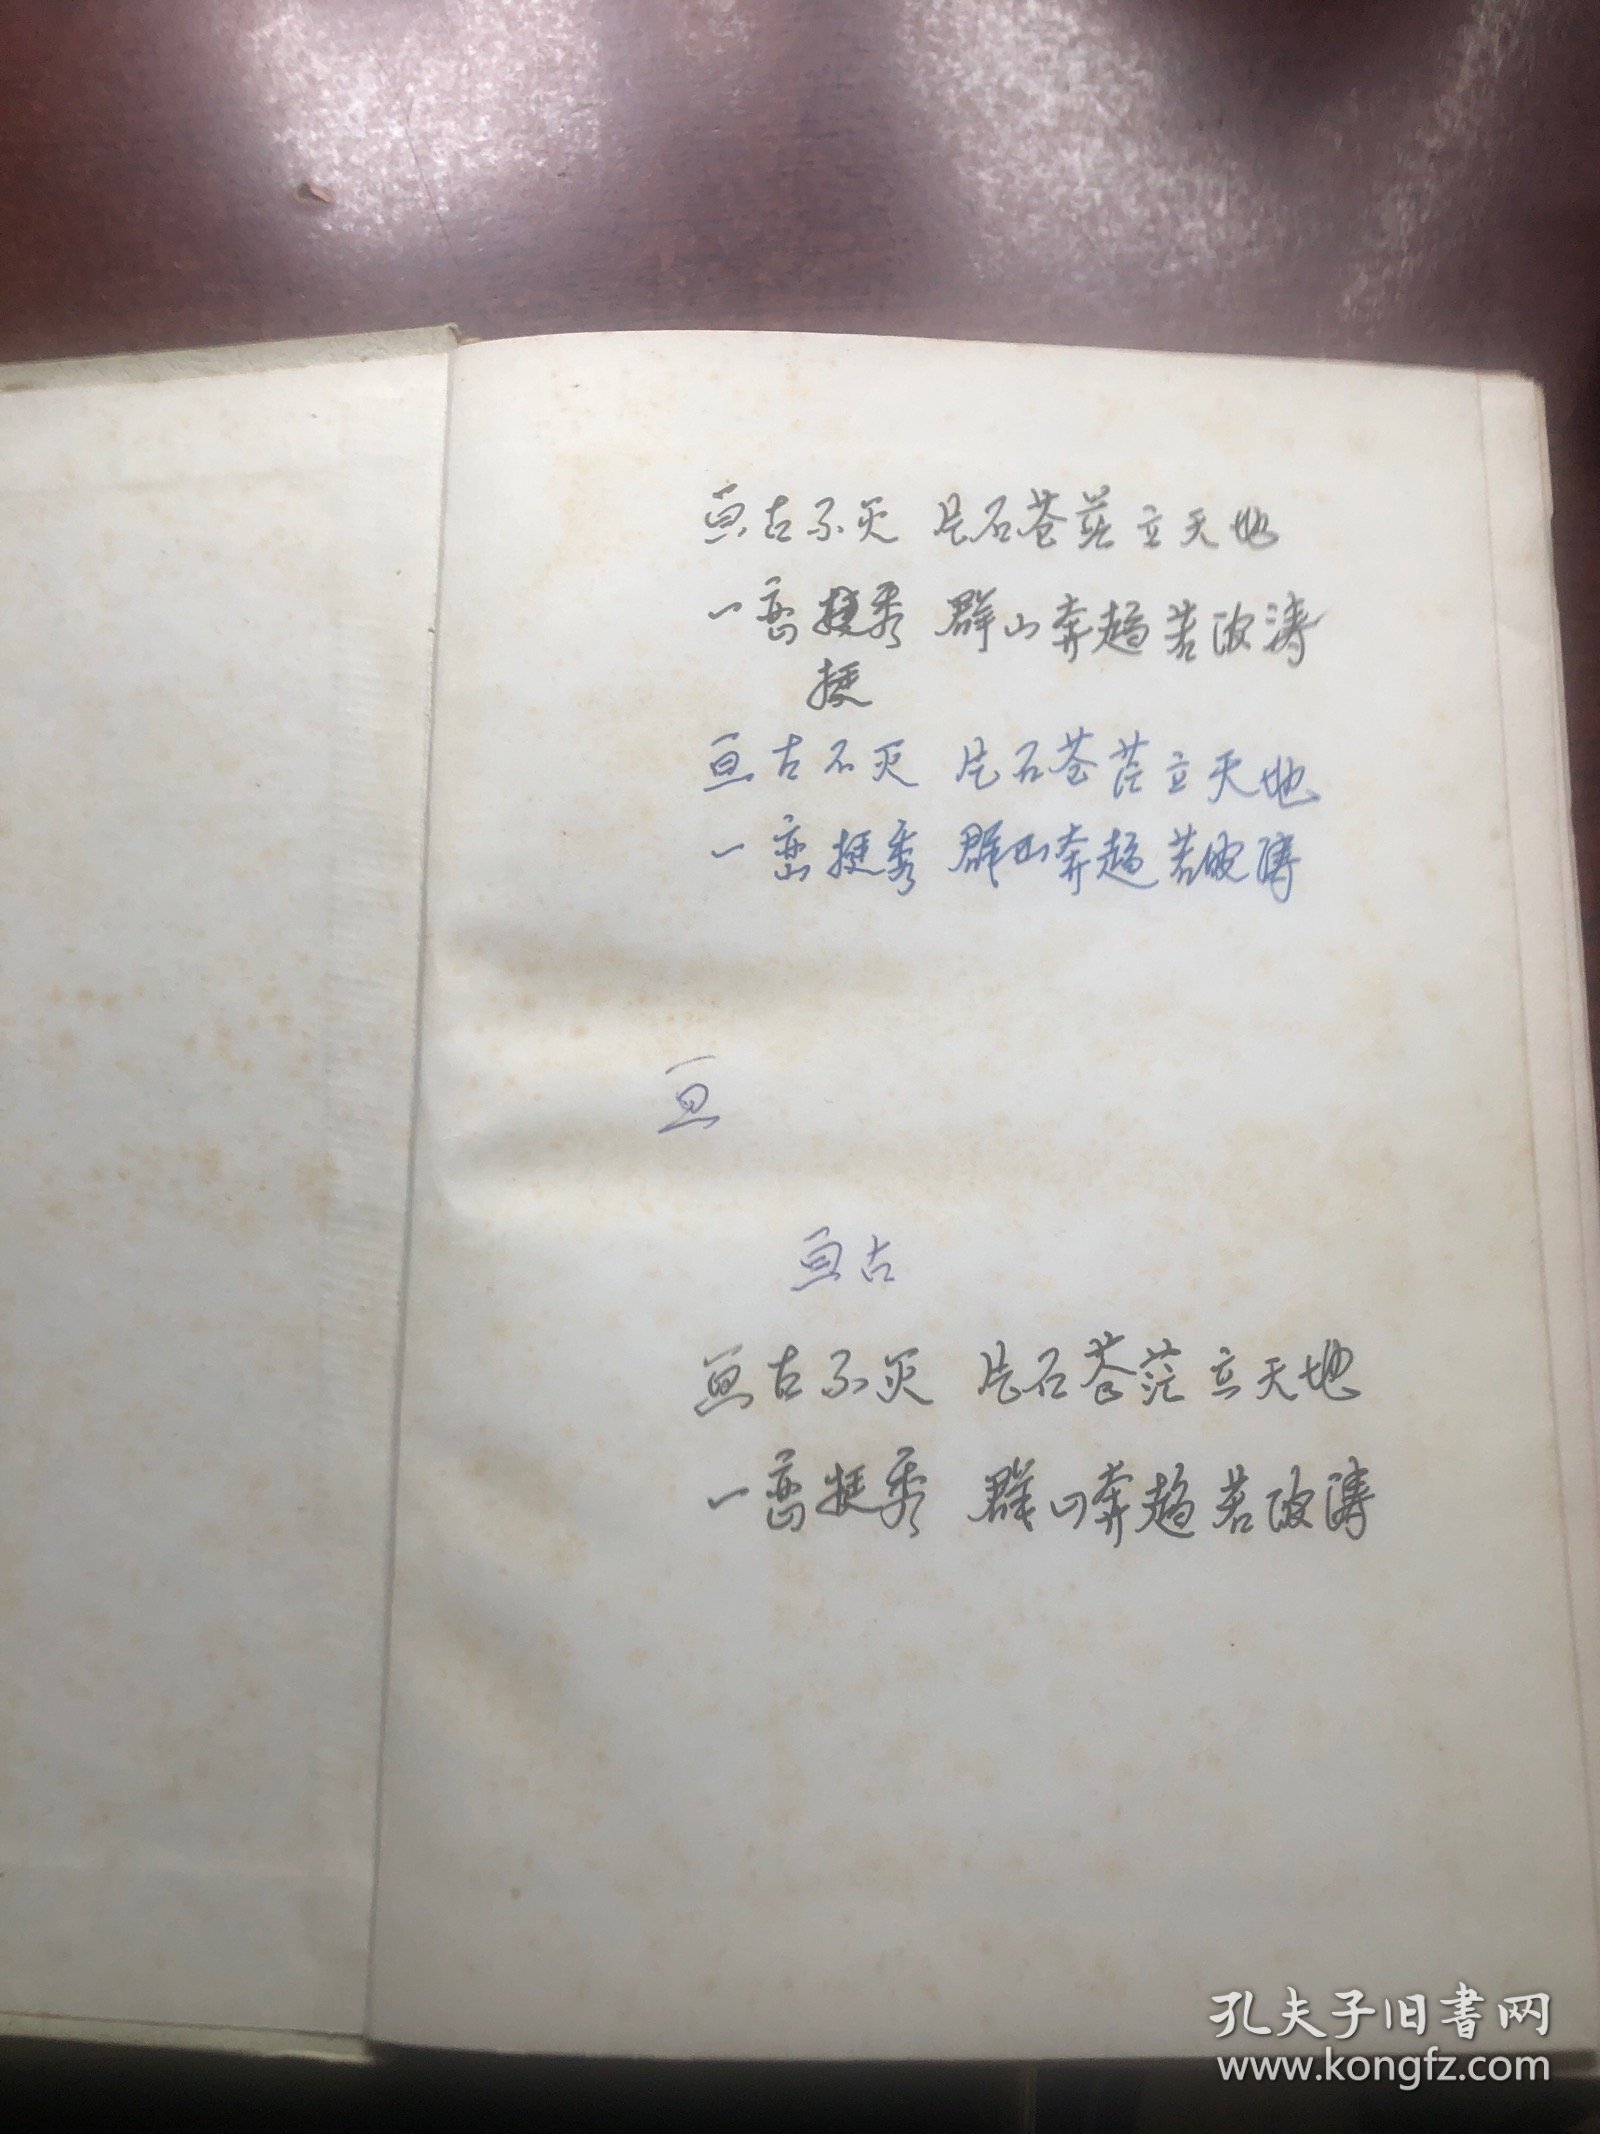 亘古不灭 片石苍茫立天地
一峦挺秀 群山奔趋若波涛
挺
亘古不灭 片石苍茫立天地
一峦挺秀 群山奔趋若波涛
亘
亘古
亘古不灭 片石苍茫立天地
一峦挺秀 群山奔趋若波涛
孔夫子旧书网
www.kongfz.com